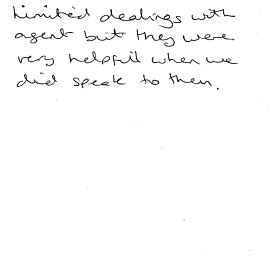 Limited dealings with
agent but they were
very helpful when we
did speak to them.